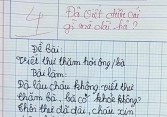 Đã viết
gì mà dấu bà?
Đề bài:
Viết thư thăm hỏi ông/bà
Bài làm:
Đã lâu cháu không viết thư
thăm bà, bà có khỏe không?
Thôi thư đã dài, cháu xin